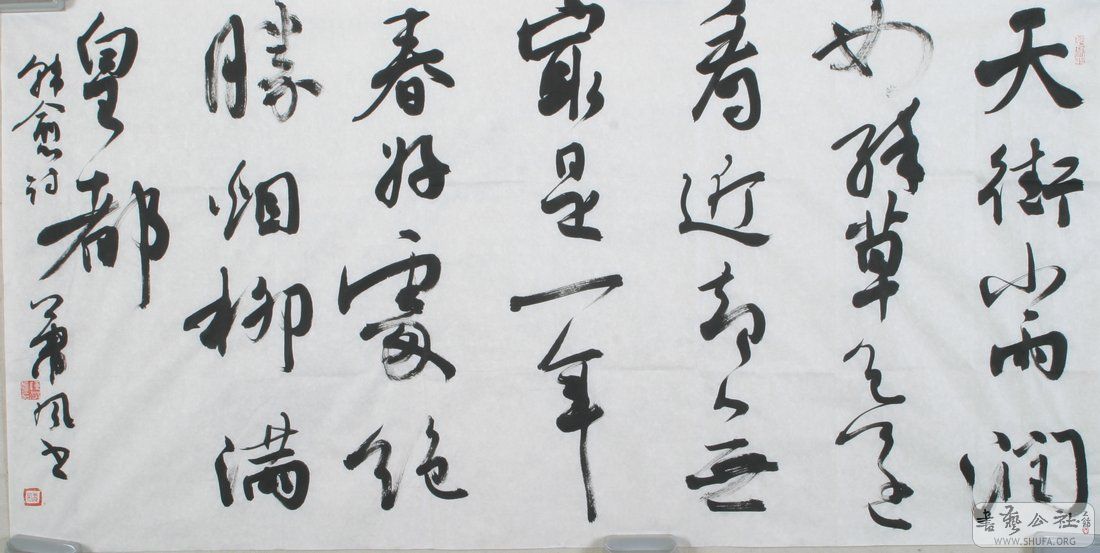 天街小雨润
如酥草色遥
看近却无
最是一年
春好處绝
勝烟柳满
皇都
韩愈诗 萧风书
書藝公社
WWW.SHUFA.ORG